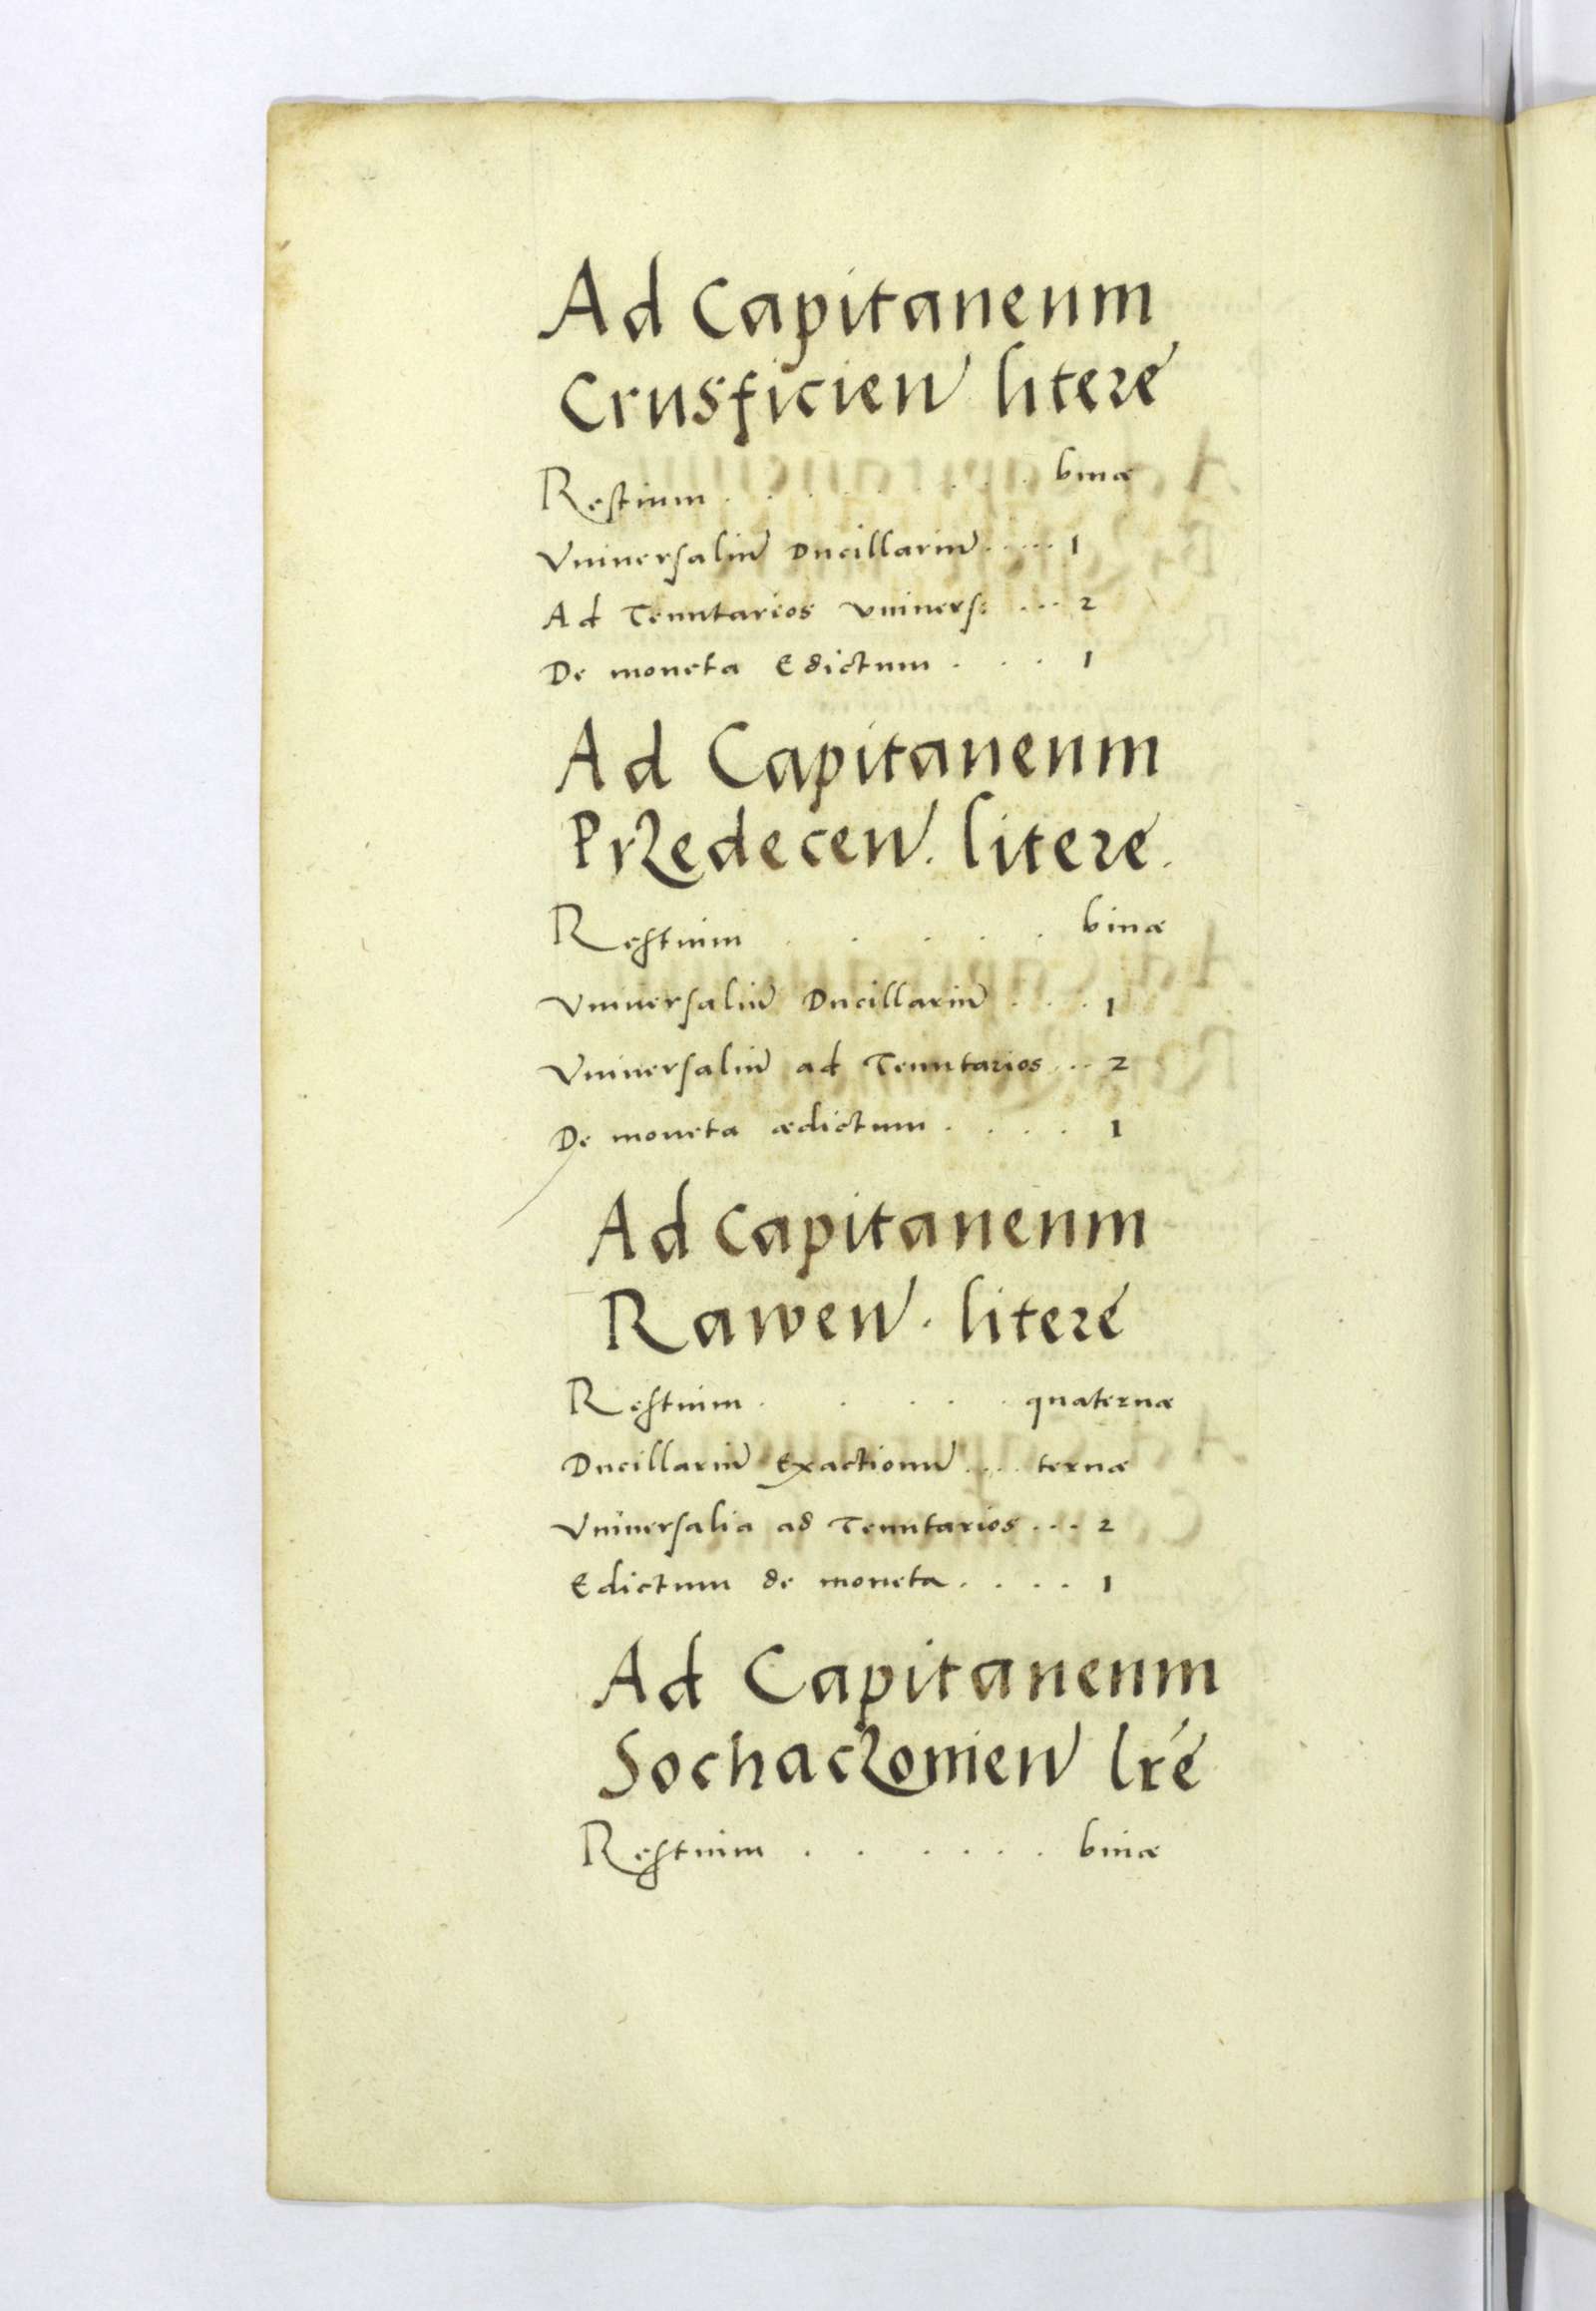 Ad Capitaneum
Crusficien literę
Restium . . . . . . . . binæ
Vniuersaliū Ducillariū ..... 1
Ad Tenutarios vniuers: ... 2
De moneta Edictum . . . 1
Ad Capitaneum
Przedecen. literę.
Restium . . . . . binæ
Vniuersaliū Ducillariū . . . 1
Vniuersaliū ad Tenutarios ... 2
De moneta ædictum . . . . 1
Ad Capitaneum
Rawen. literę
Restium . . . . . quaternæ
Ducillariū Exactionū .... ternæ
Vniuersalia ad Tenutarios ... 2
Edictum de moneta . . . . 1
Ad Capitaneum
Sochaczouien lrę
Restium . . . . . . binæ